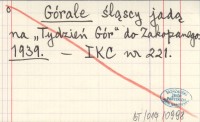 Górale śląscy jadą
na „Tydzień Gór" do Zakopanego.
1939. — IKC nr 221.